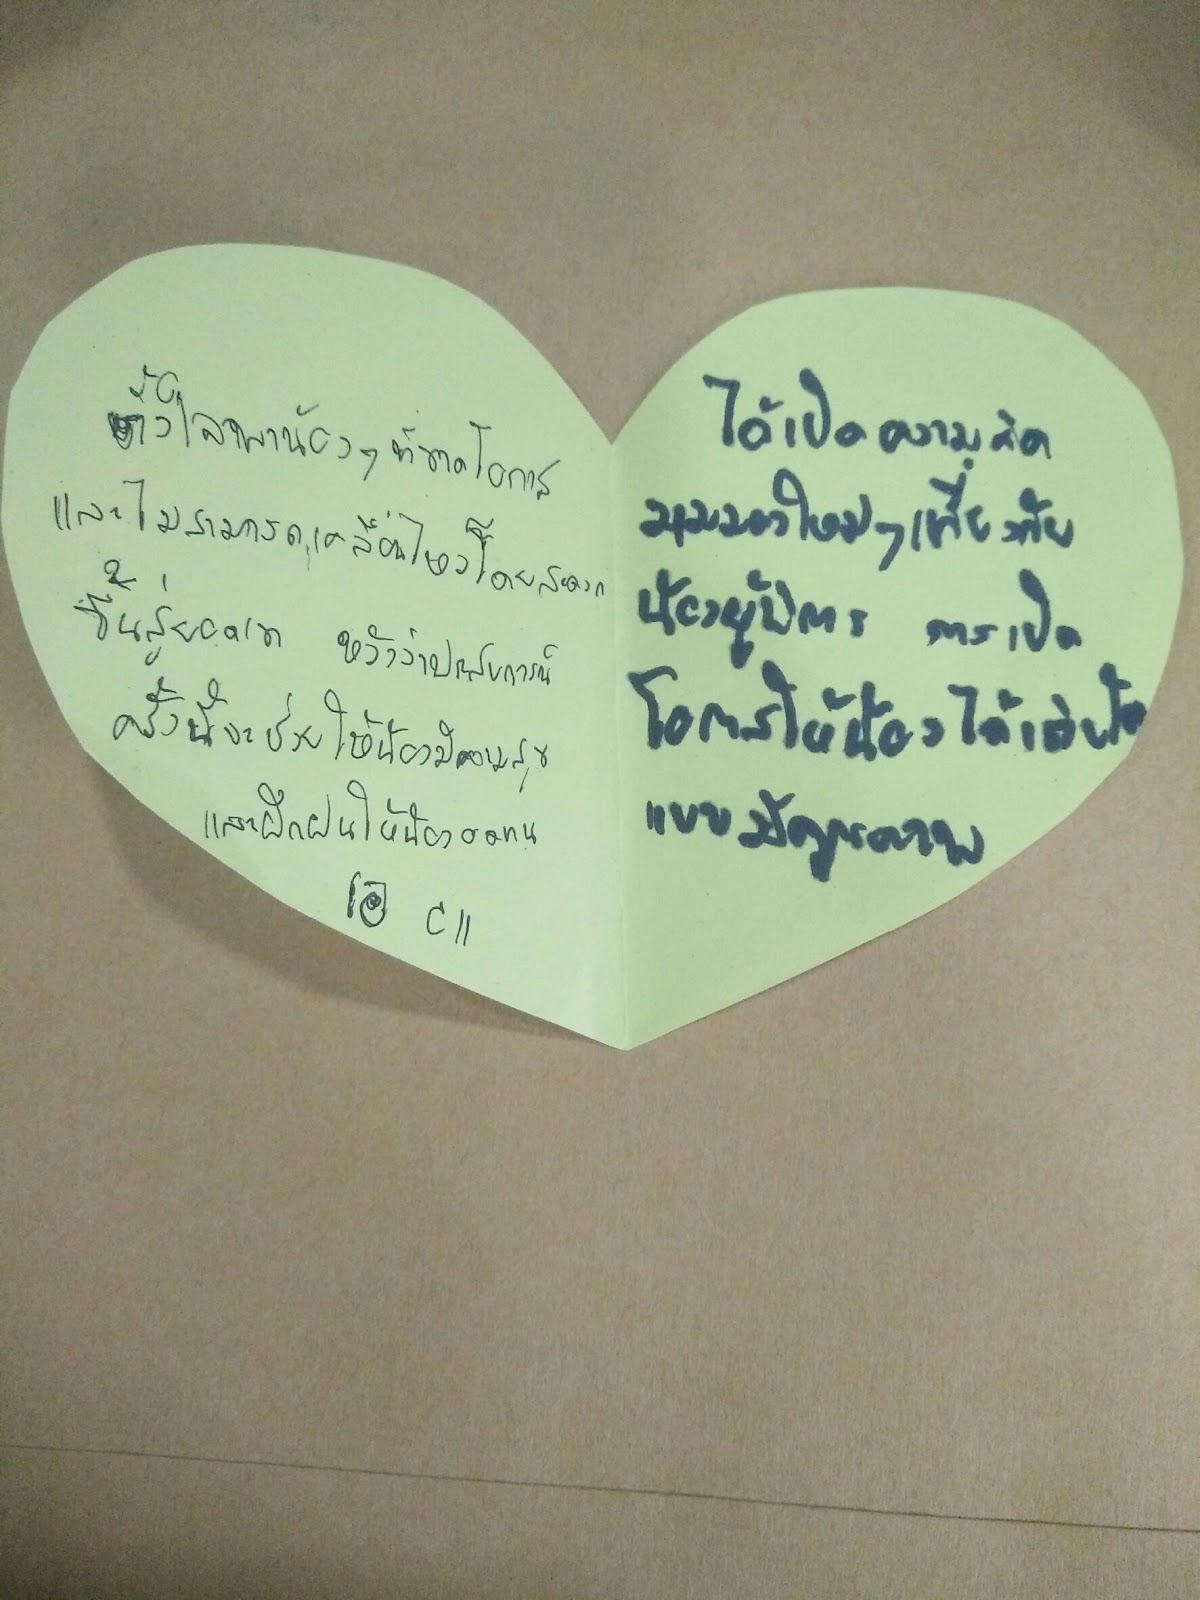 ตั้งใจพาน้องๆ ที่ขาดโอกาส
และไม่สามารถเคลื่อนไหวโดยสะดวก
ขึ้นสู่ยอดเขา หวังว่าประสบการณ์
ครั้งนี้จะช่วยให้น้องมีความสุข
และฝึกฝนให้น้องอดทน
C11
ได้เปิดความคิด
มุมมองใหม่ๆ เกี่ยวกับ
น้องผู้พิการ การเปิด
โอกาสให้น้องได้เติบโต
แบบมีคุณภาพ